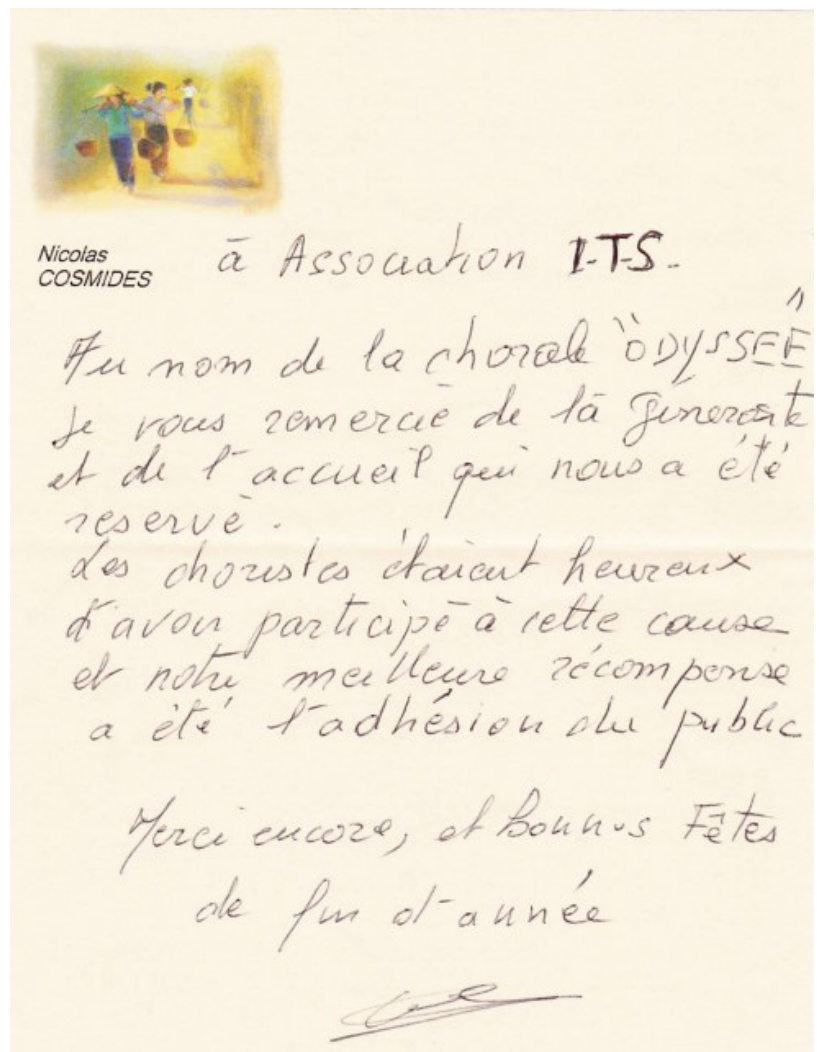 Nicolas
COSMIDES
à Association I-T-S-
Au nom de la chorale "ODYSSEE"
Je vous remercie de la générosité
et de l'accueil qui nous a été
reservé.
Les choristes étaient heureux
d'avoir participé à cette cause
et notre meilleure récompense
a été l'adhésion du public
Merci encore, et bonnes Fêtes
de fin d'année